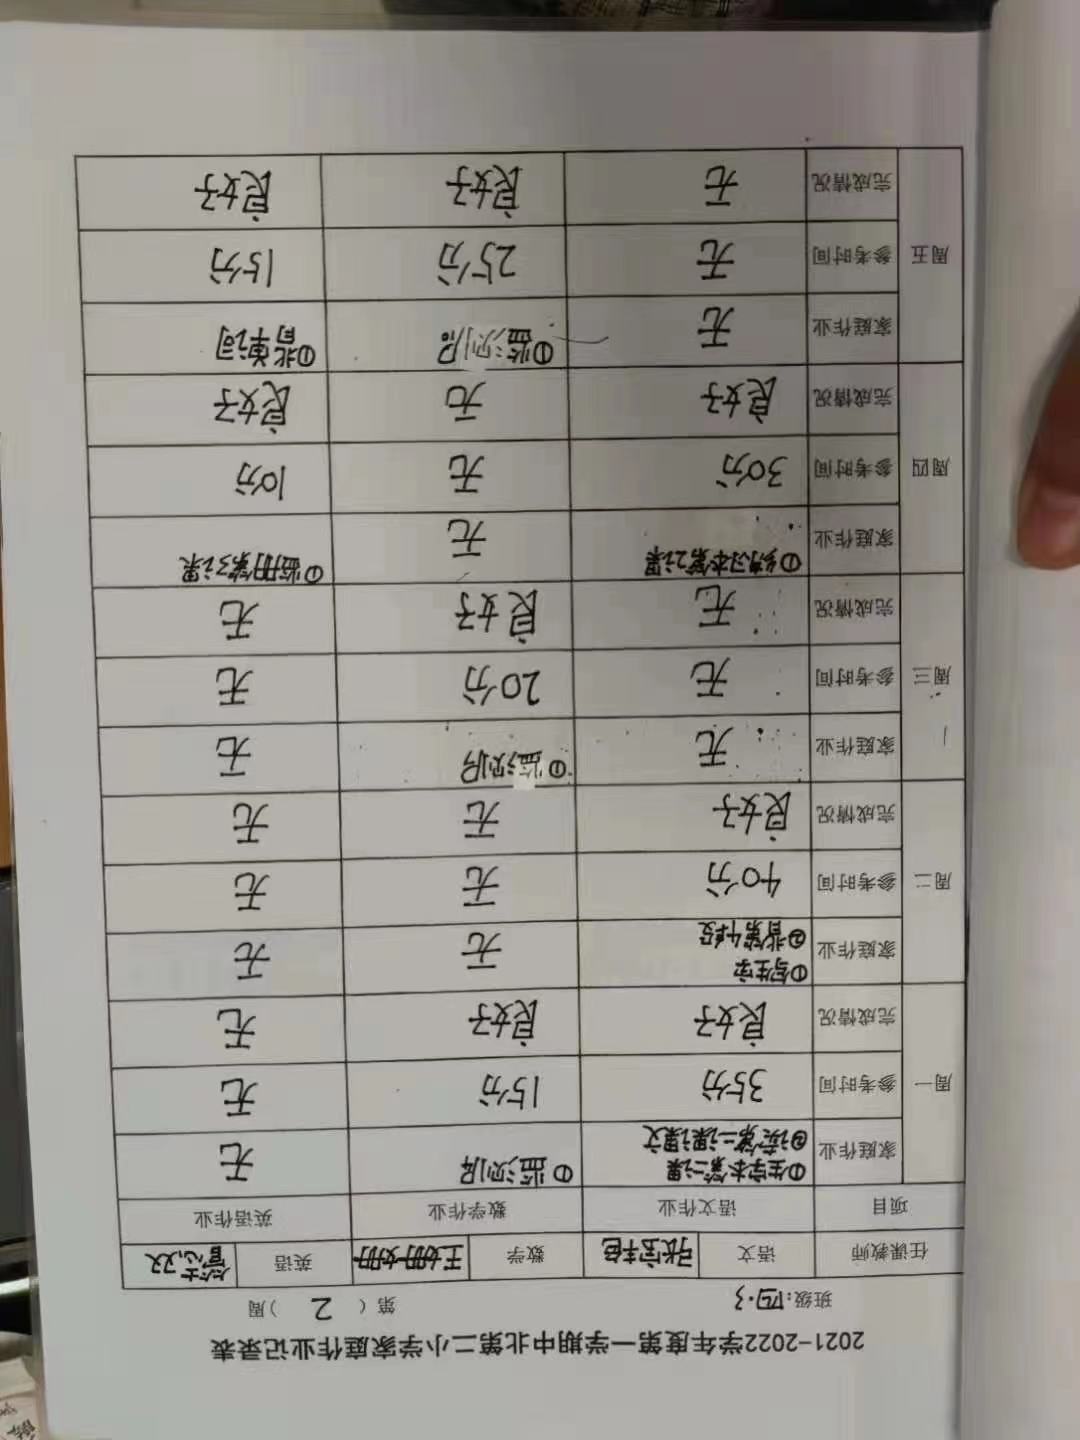 2021-2022学年度第一学期中北第二小学家庭作业记录表
班级:四.3 第（ 2 ）周
任课教师 语文 张宝艳 数学 王姗姗 英语 管志双
项目 语文作业 数学作业 英语作业
周一 家庭作业 ①生字本第二课 ①监测 无
②读第二课课文
参考时间 35分 15分 无
完成情况 良好 良好 无
周二 家庭作业 ①写生字 无 无
②背第4段
参考时间 40分 无 无
完成情况 良好 无 无
周三 家庭作业 无 ①监测 无
参考时间 无 20分 无
完成情况 无 良好 无
周四 家庭作业 ①练习本第2课 无 ①监册第3课
参考时间 30分 无 10分
完成情况 良好 无 良好
周五 家庭作业 无 ①监测 ①背单词
参考时间 无 25分 15分
完成情况 无 良好 良好